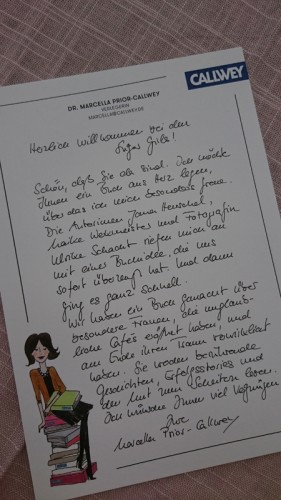 CALLWEY
DR. MARCELLA PRIOR-CALLWEY
VERLEGERIN
Herzlich Willkommen bei den
Sugar Girls!
Schön, daß Sie da sind. Ich möchte
Ihnen ein Buch ans Herz legen,
über das ich mich besonders freue.
Die Autorinnen Jana Henschel,
Meike Werkmeister und Fotografin
Ulrike Schacht riefen mich an
mit einer Buchidee, die uns
sofort überzeugt hat. Und dann
ging es ganz schnell.
Wir haben ein Buch gemacht über
besondere Frauen, die unglaub-
liche Cafés eröffnet haben, und
am Ende ihren Traum verwirklicht
haben. Sie werden berührende
Geschichten, Erfolgsstories und
den Mut zum Scheitern lesen.
Ich wünsche Ihnen viel Vergnügen
Ihre
Marcella Prior-Callwey